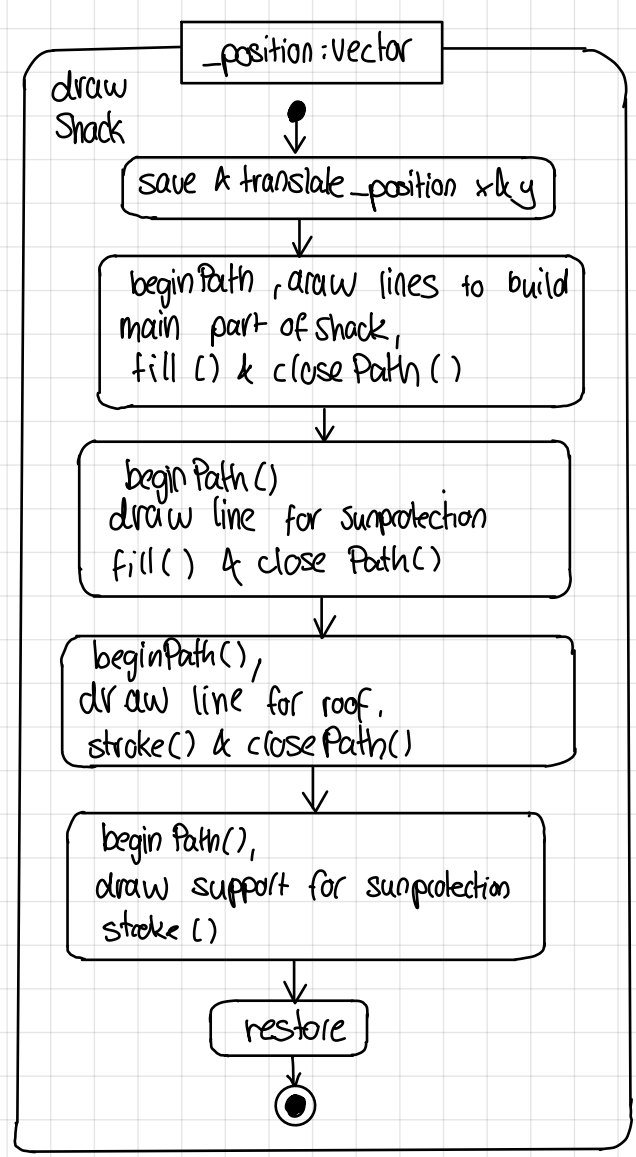 _position:vector
draw
Shack
save & translate_position x&y
beginPath, draw lines to build
main part of shack,
fill () & closePath()
beginPath()
draw line for sunprotection
fill() & close Path()
beginPath(),
draw line for roof,
stroke() & closePath()
begin Path(),
draw support for sunprotection
stroke ()
restore